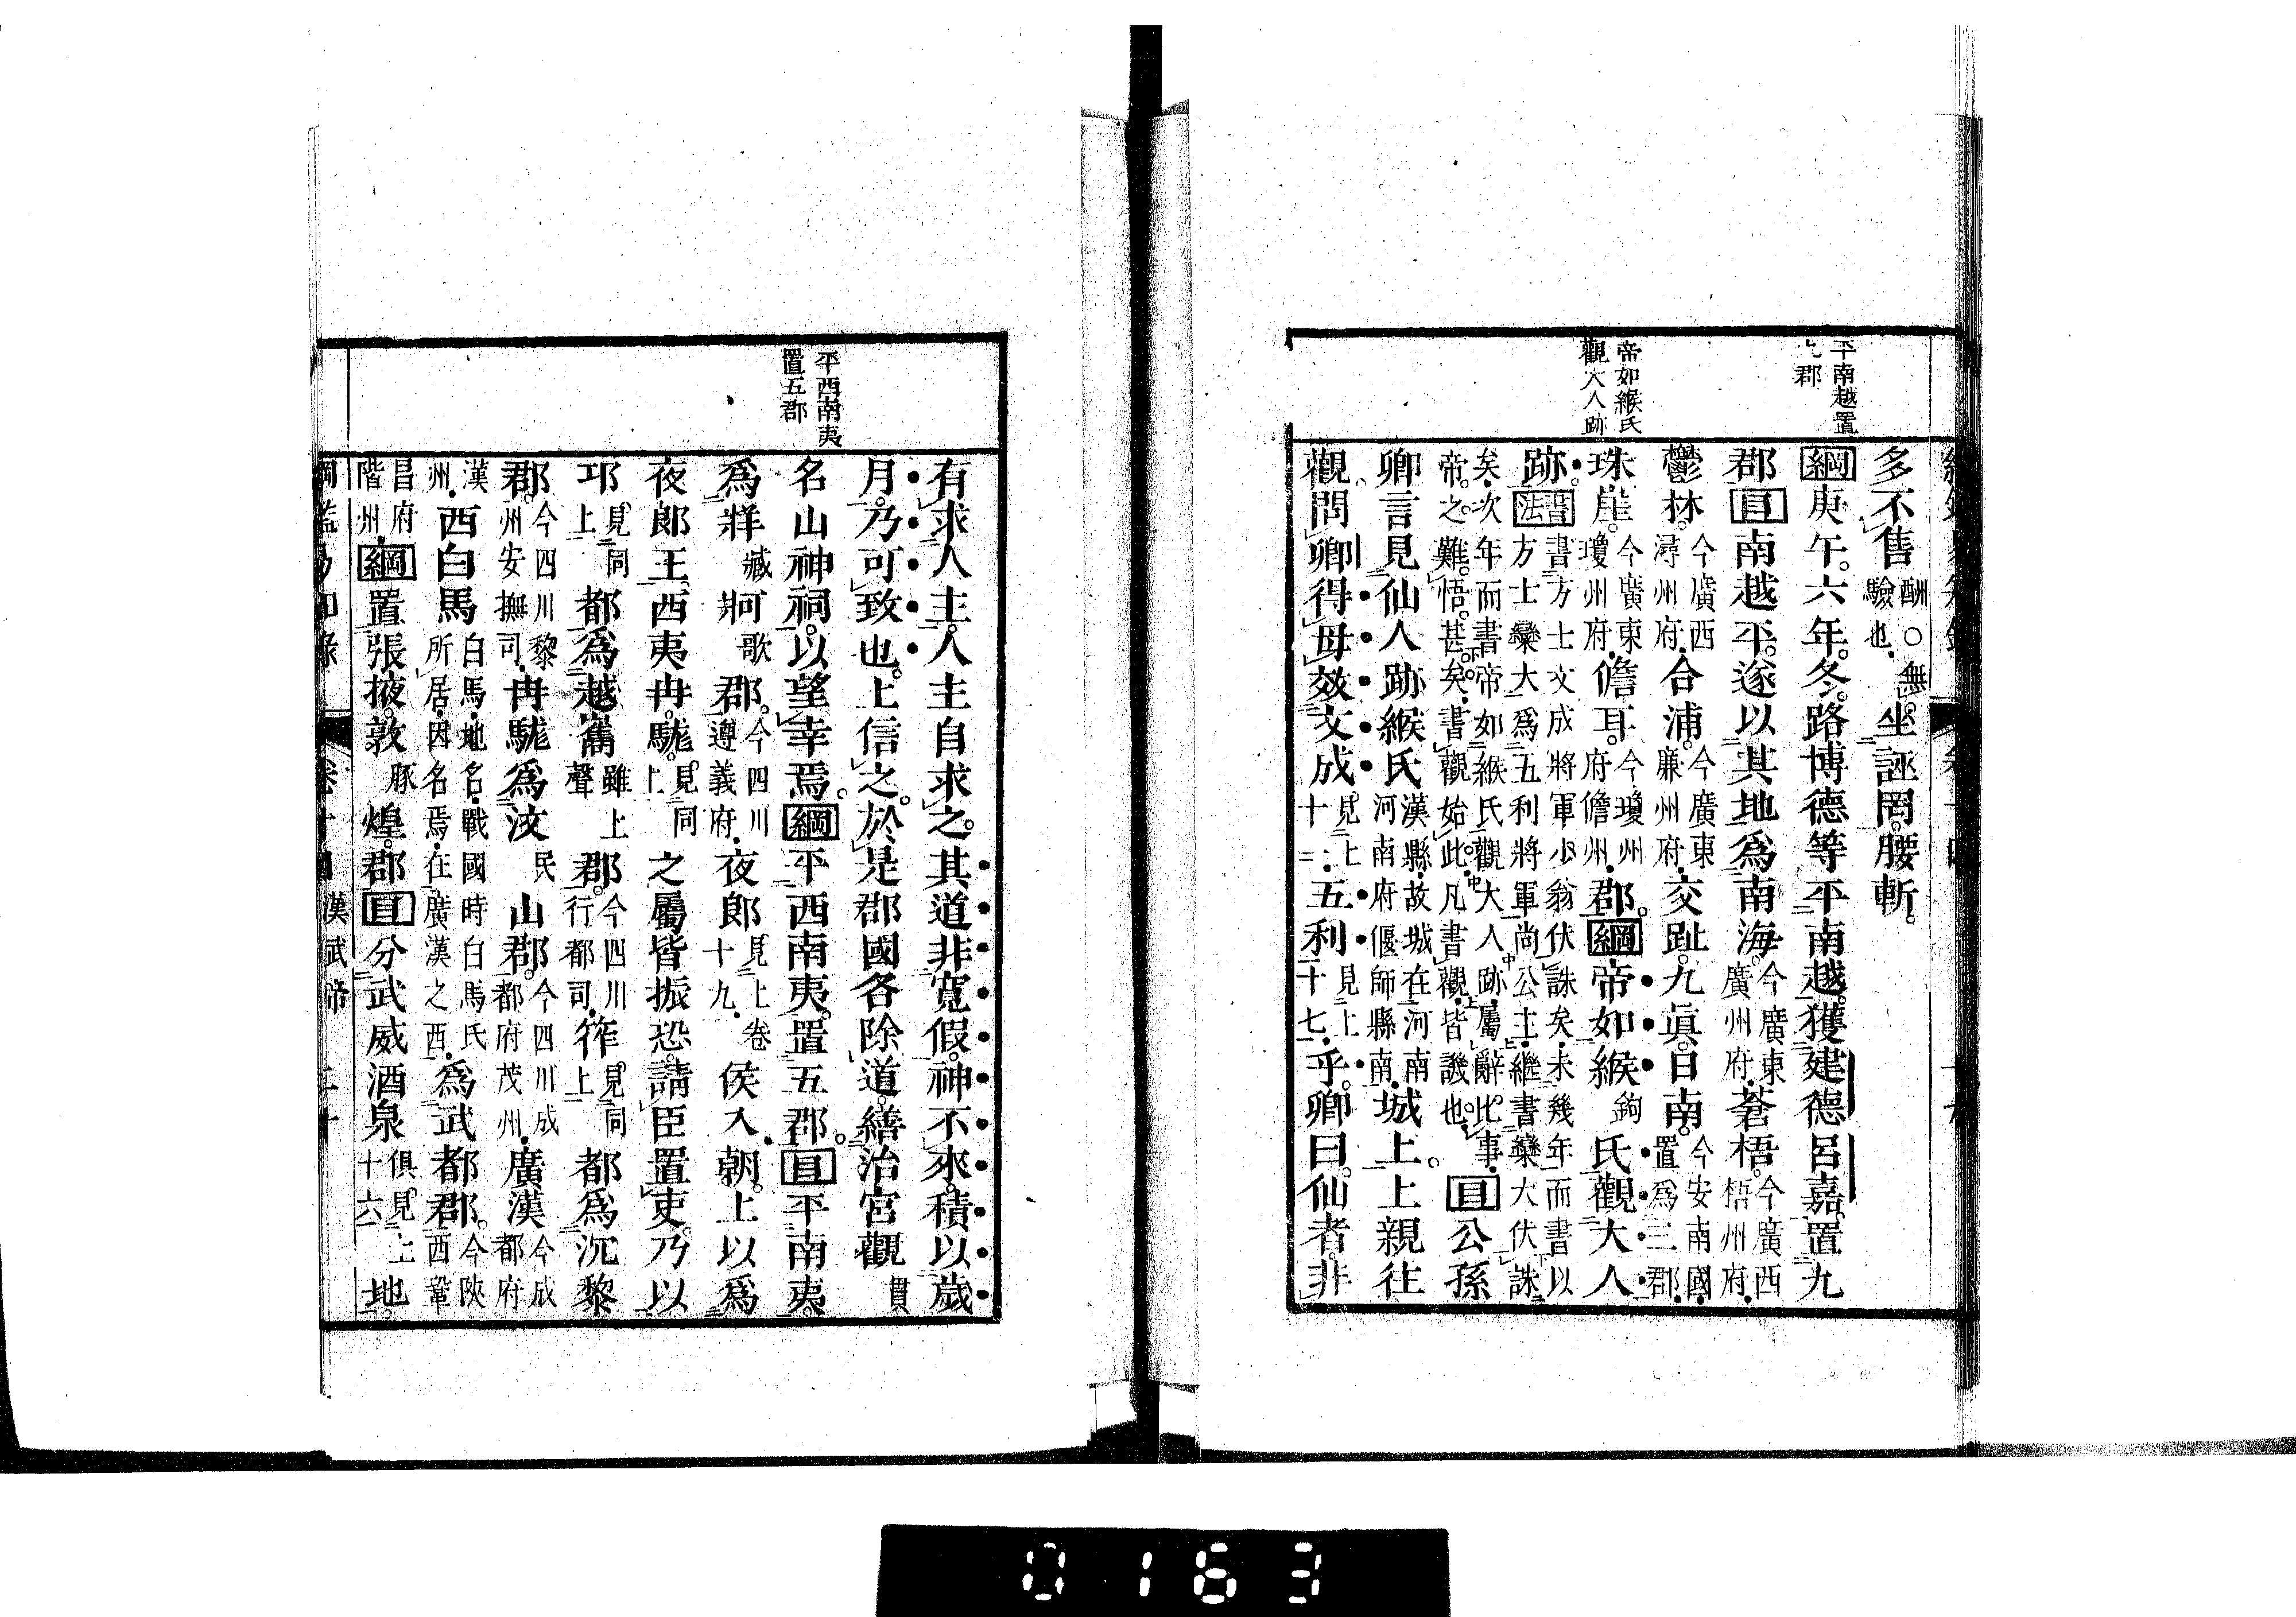 平南越置
九郡
帝如緱氏
觀大人跡
多不售酬○無驗也坐誣罔腰斬
綱庚午六年冬路博德等平南越獲建德呂嘉置九
郡目南越平遂以其地爲南海今廣東廣州府蒼梧今廣西梧州府
鬱林今廣西潯州府合浦今廣東廉州府交趾九眞日南今安南國置爲三郡
珠崖今廣東瓊州府儋耳今瓊州府儋州郡綱帝如緱鉤氏觀大人
跡書法書方士文成將軍少翁伏誅矣未幾年而書以方士欒大爲五利將軍尚公主繼書欒大伏誅
矣次年而書帝如緱氏觀大人跡屬辭比事帝之難悟甚矣書觀始此凡書觀皆譏也目公孫
卿言見仙人跡緱氏漢縣故城在河南河南府偃師縣南城上上親往
觀問卿得毋效文成見上十二五利見上十七乎卿曰仙者非
平西南夷
置五郡
有求人主人主自求之其道非寬假神不來積以歲
月乃可致也上信之於是郡國各除道繕治宮觀貫
名山神祠以望幸焉綱平西南夷置五郡目平南夷
爲牂臧牁歌郡今四川遵義府夜郎見上卷十九侯入朝上以爲
夜郎王西夷冉駹見同上之屬皆振恐請臣置吏乃以
邛見同上都爲越巂雖上聲郡今四川行都司筰見同上都爲沉黎
郡今四川黎州安撫司冉駹爲汶民山郡今四川成都府茂州廣漢今成都府
漢州西白馬白馬地名戰國時白馬氏所居因名焉在廣漢之西爲武都郡今陝西鞏
昌府階州綱置張掖敦豚煌郡目分武威酒泉俱見上十六地
漢武帝